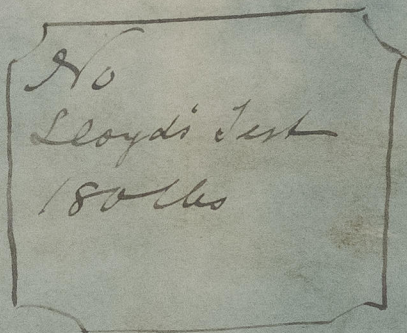 No
Lloyd's Test
180 lbs